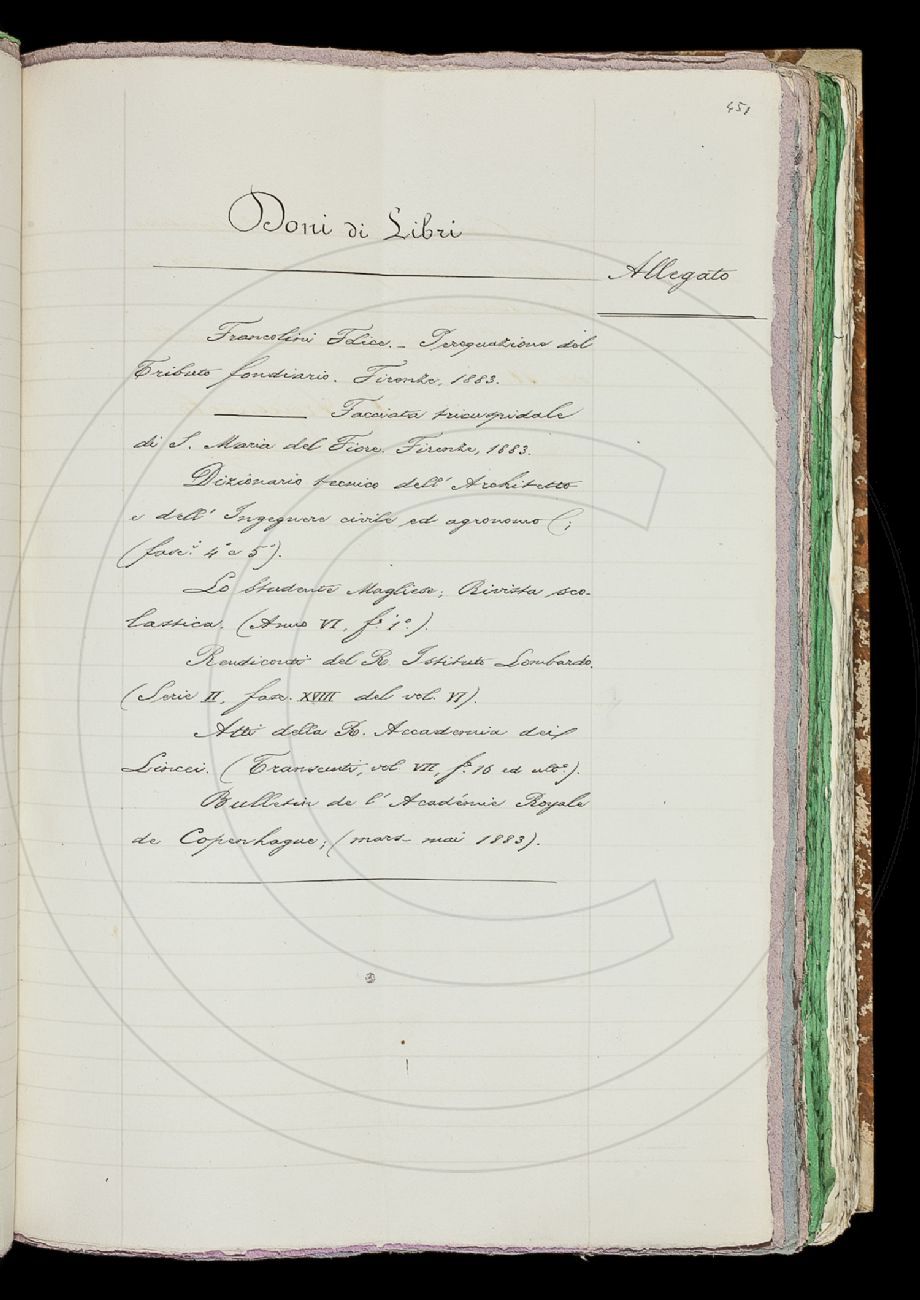 451
Doni di Libri
Allegato
Francolini Felice. – Perequazione del
Tributo fondiario. Firenze, 1883.
——— Facciata tricuspidale
di S. Maria del Fiore. Firenze, 1883.
Dizionario tecnico dell' Architetto
e dell' Ingegnere civile ed agronomo (;
(fasc.i 4° e 5°).
Lo Studente Magliese; Rivista sco-
lastica. (Anno VI, f.° 1°.).
Rendiconti del R. Istituto Lombardo.
(Serie II, fasc. XVIII del vol. VI).
Atti della R. Accademia dei
Lincei. (Transunti, vol. VII, f.° 16 ed ult°.).
Bulletin de l' Académie Royale
de Copenhague; (mars – mai 1883).